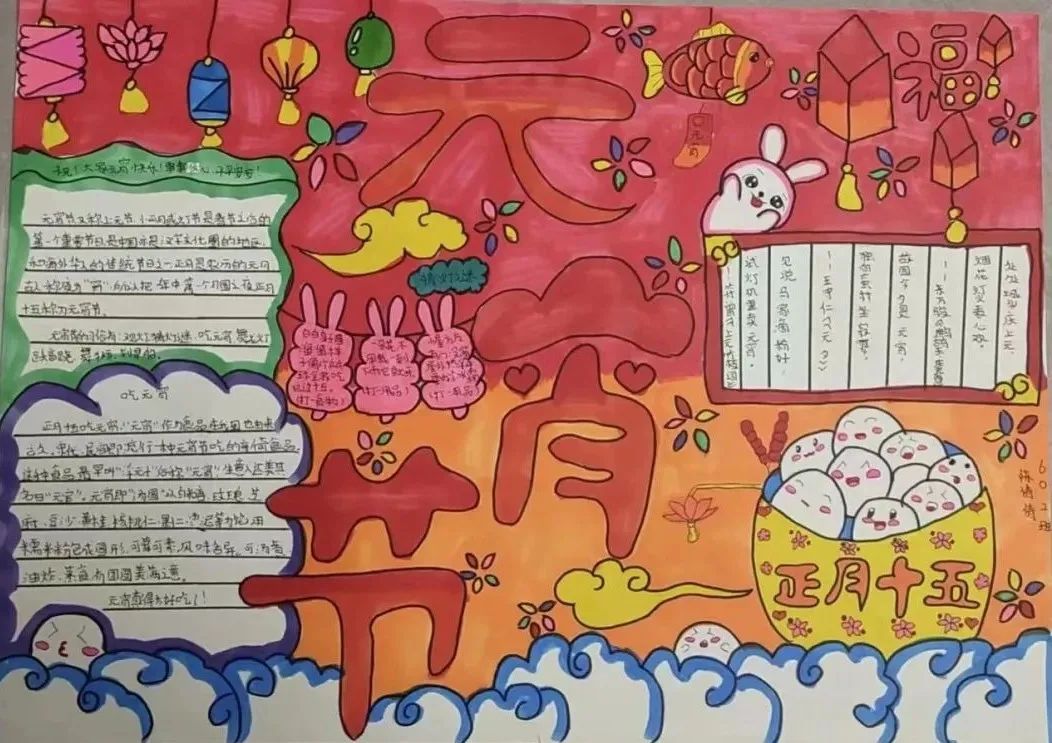 元
宵
节
福
元宵
祝！大家元宵快乐！
元宵节又称上元节、小正月或灯节是春节之后的
第一个重要节日,是中国亦是汉字文化圈的地区
和海外华人的传统节日之一正月是农历的元月
古人称夜为"宵"所以把一年中第一个月圆之夜正月
十五称为元宵节。
元宵节的习俗有:观灯猜灯谜、吃元宵、舞龙灯
踩高跷、舞狮、划旱船。
猜灯谜
(打一食物)
(打一用品)
(打一用品)
处处逢场庆上元。
烟花灯火
故园今夕是元宵,
独向蛮村坐寂寥。
——王守仁《元夕》
见说马家滴粉好
试灯风里卖元宵。
——符曾《上元竹枝词》
吃元宵
正月十五吃元宵,"元宵"作为食品在我国也由来
古久,宋代,民间即流行一种元宵节吃的新奇食品
这种食品,最早叫"浮元子"后称"元宵"生意人还美其
名曰"元宝"。元宵即"汤圆"以白糖、玫瑰、芝
麻、豆沙、黄桂、核桃仁、果仁、枣泥等为馅,用
糯米粉包成圆形,可荤可素,风味各异。可汤煮、
油炸、蒸食,有团圆美满之意。
元宵真得太好吃了!
正月十五
602班